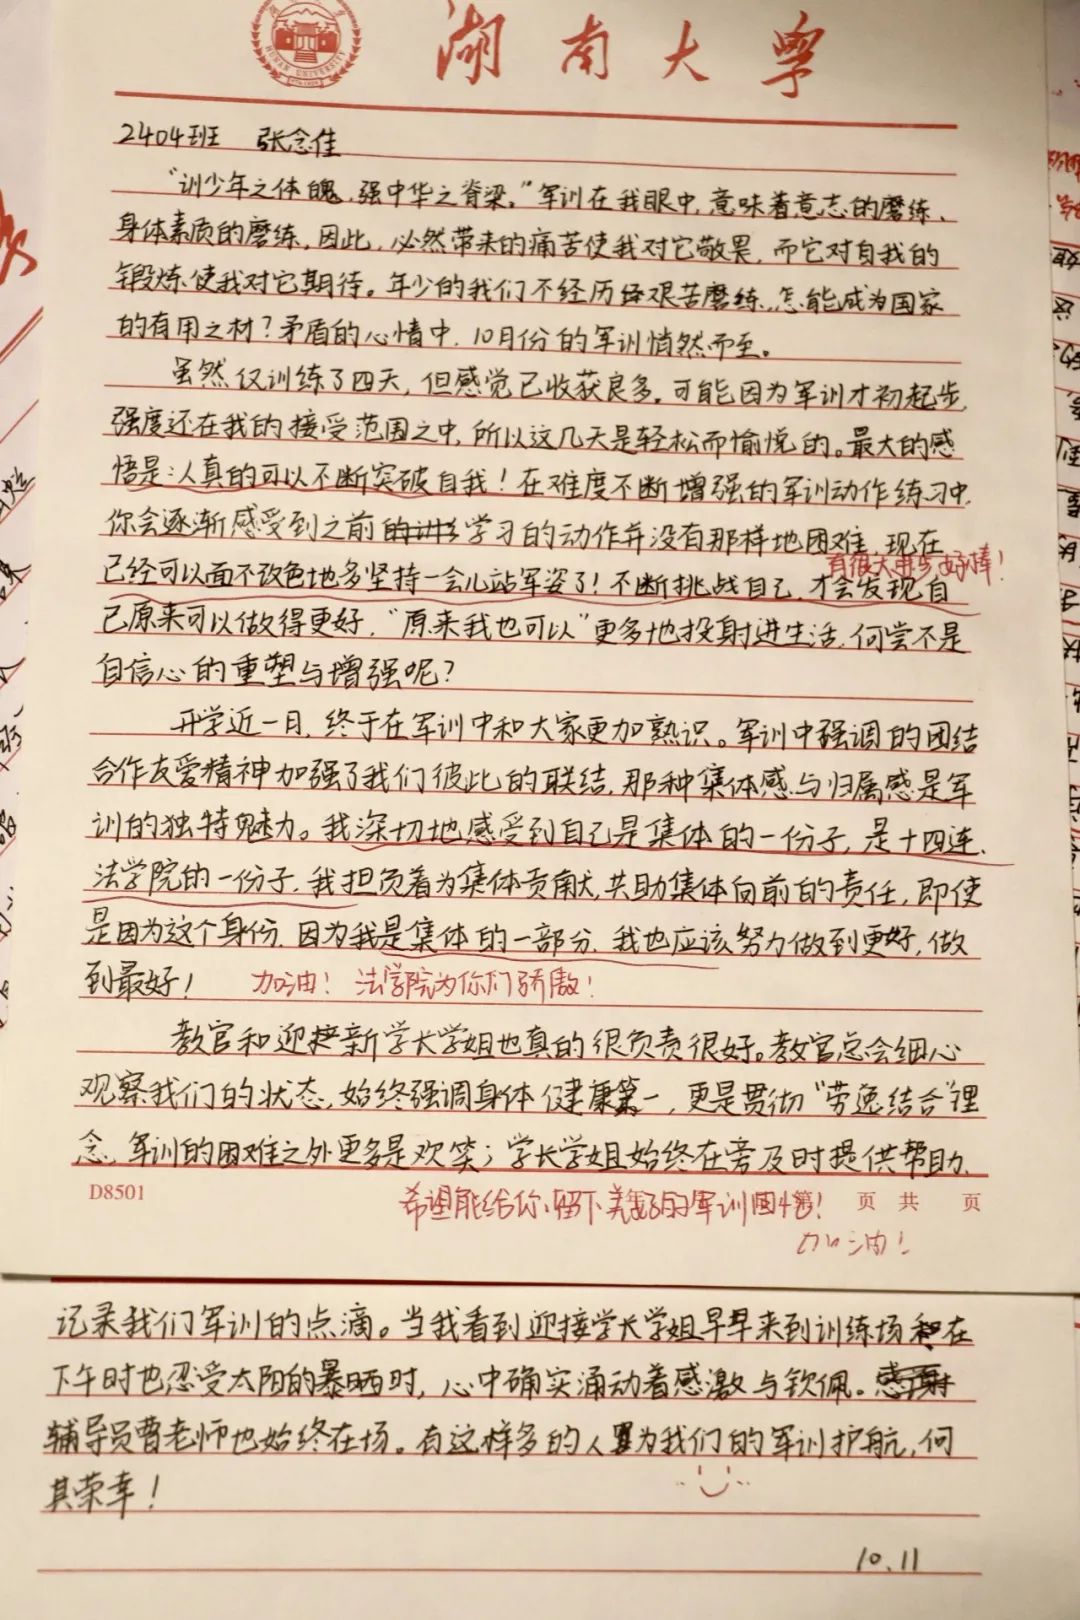 HUNAN UNIVERSITY
湖南大學
2404班 张念佳
“训少年之体魄,强中华之脊梁。”军训在我眼中,意味着意志的磨练、
身体素质的磨练,因此,必然带来的痛苦使我对它敬畏,而它对自我的
锻炼使我对它期待。年少的我们不经历经艰苦磨练,怎能成为国家
的有用之材?矛盾的心情中,10月份的军训悄然而至。
虽然仅训练了四天,但感觉已收获良多。可能因为军训才初起步,
强度还在我的接受范围之中,所以这几天是轻松而愉悦的。最大的感
悟是:人真的可以不断突破自我!在难度不断增强的军训动作练习中,
你会逐渐感受到之前学习的动作并没有那样地困难,现在
有很大进步 好棒!
已经可以面不改色地多坚持一会儿站军姿了!不断挑战自己,才会发现自
己原来可以做得更好,“原来我也可以”更多地投射进生活,何尝不是
自信心的重塑与增强呢?
开学近一月,终于在军训中和大家更加熟识。军训中强调的团结
合作友爱精神加强了我们彼此的联结,那种集体感与归属感是军
训的独特魅力。我深切地感受到自己是集体的一份子,是十四连、
法学院的一份子,我担负着为集体贡献,共助集体向前的责任,即使
是因为这个身份,因为我是集体的一部分,我也应该努力做到更好,做
到最好! 加油!法学院为你们骄傲!
教官和迎新学长学姐也真的很负责很好。教官总会细心
观察我们的状态,始终强调身体健康第一,更是贯彻“劳逸结合”理
念,军训的困难之外更多是欢笑;学长学姐始终在旁及时提供帮助、
D8501 第 页 共 页
希望能给你留下美好的军训回忆!
加油!
记录我们军训的点滴。当我看到迎接学长学姐早早来到训练场和在
下午时也忍受太阳的暴晒时,心中确实涌动着感激与钦佩。感谢
辅导员曹老师也始终在场。有这样多的人为我们的军训护航,何
其荣幸!
10.11